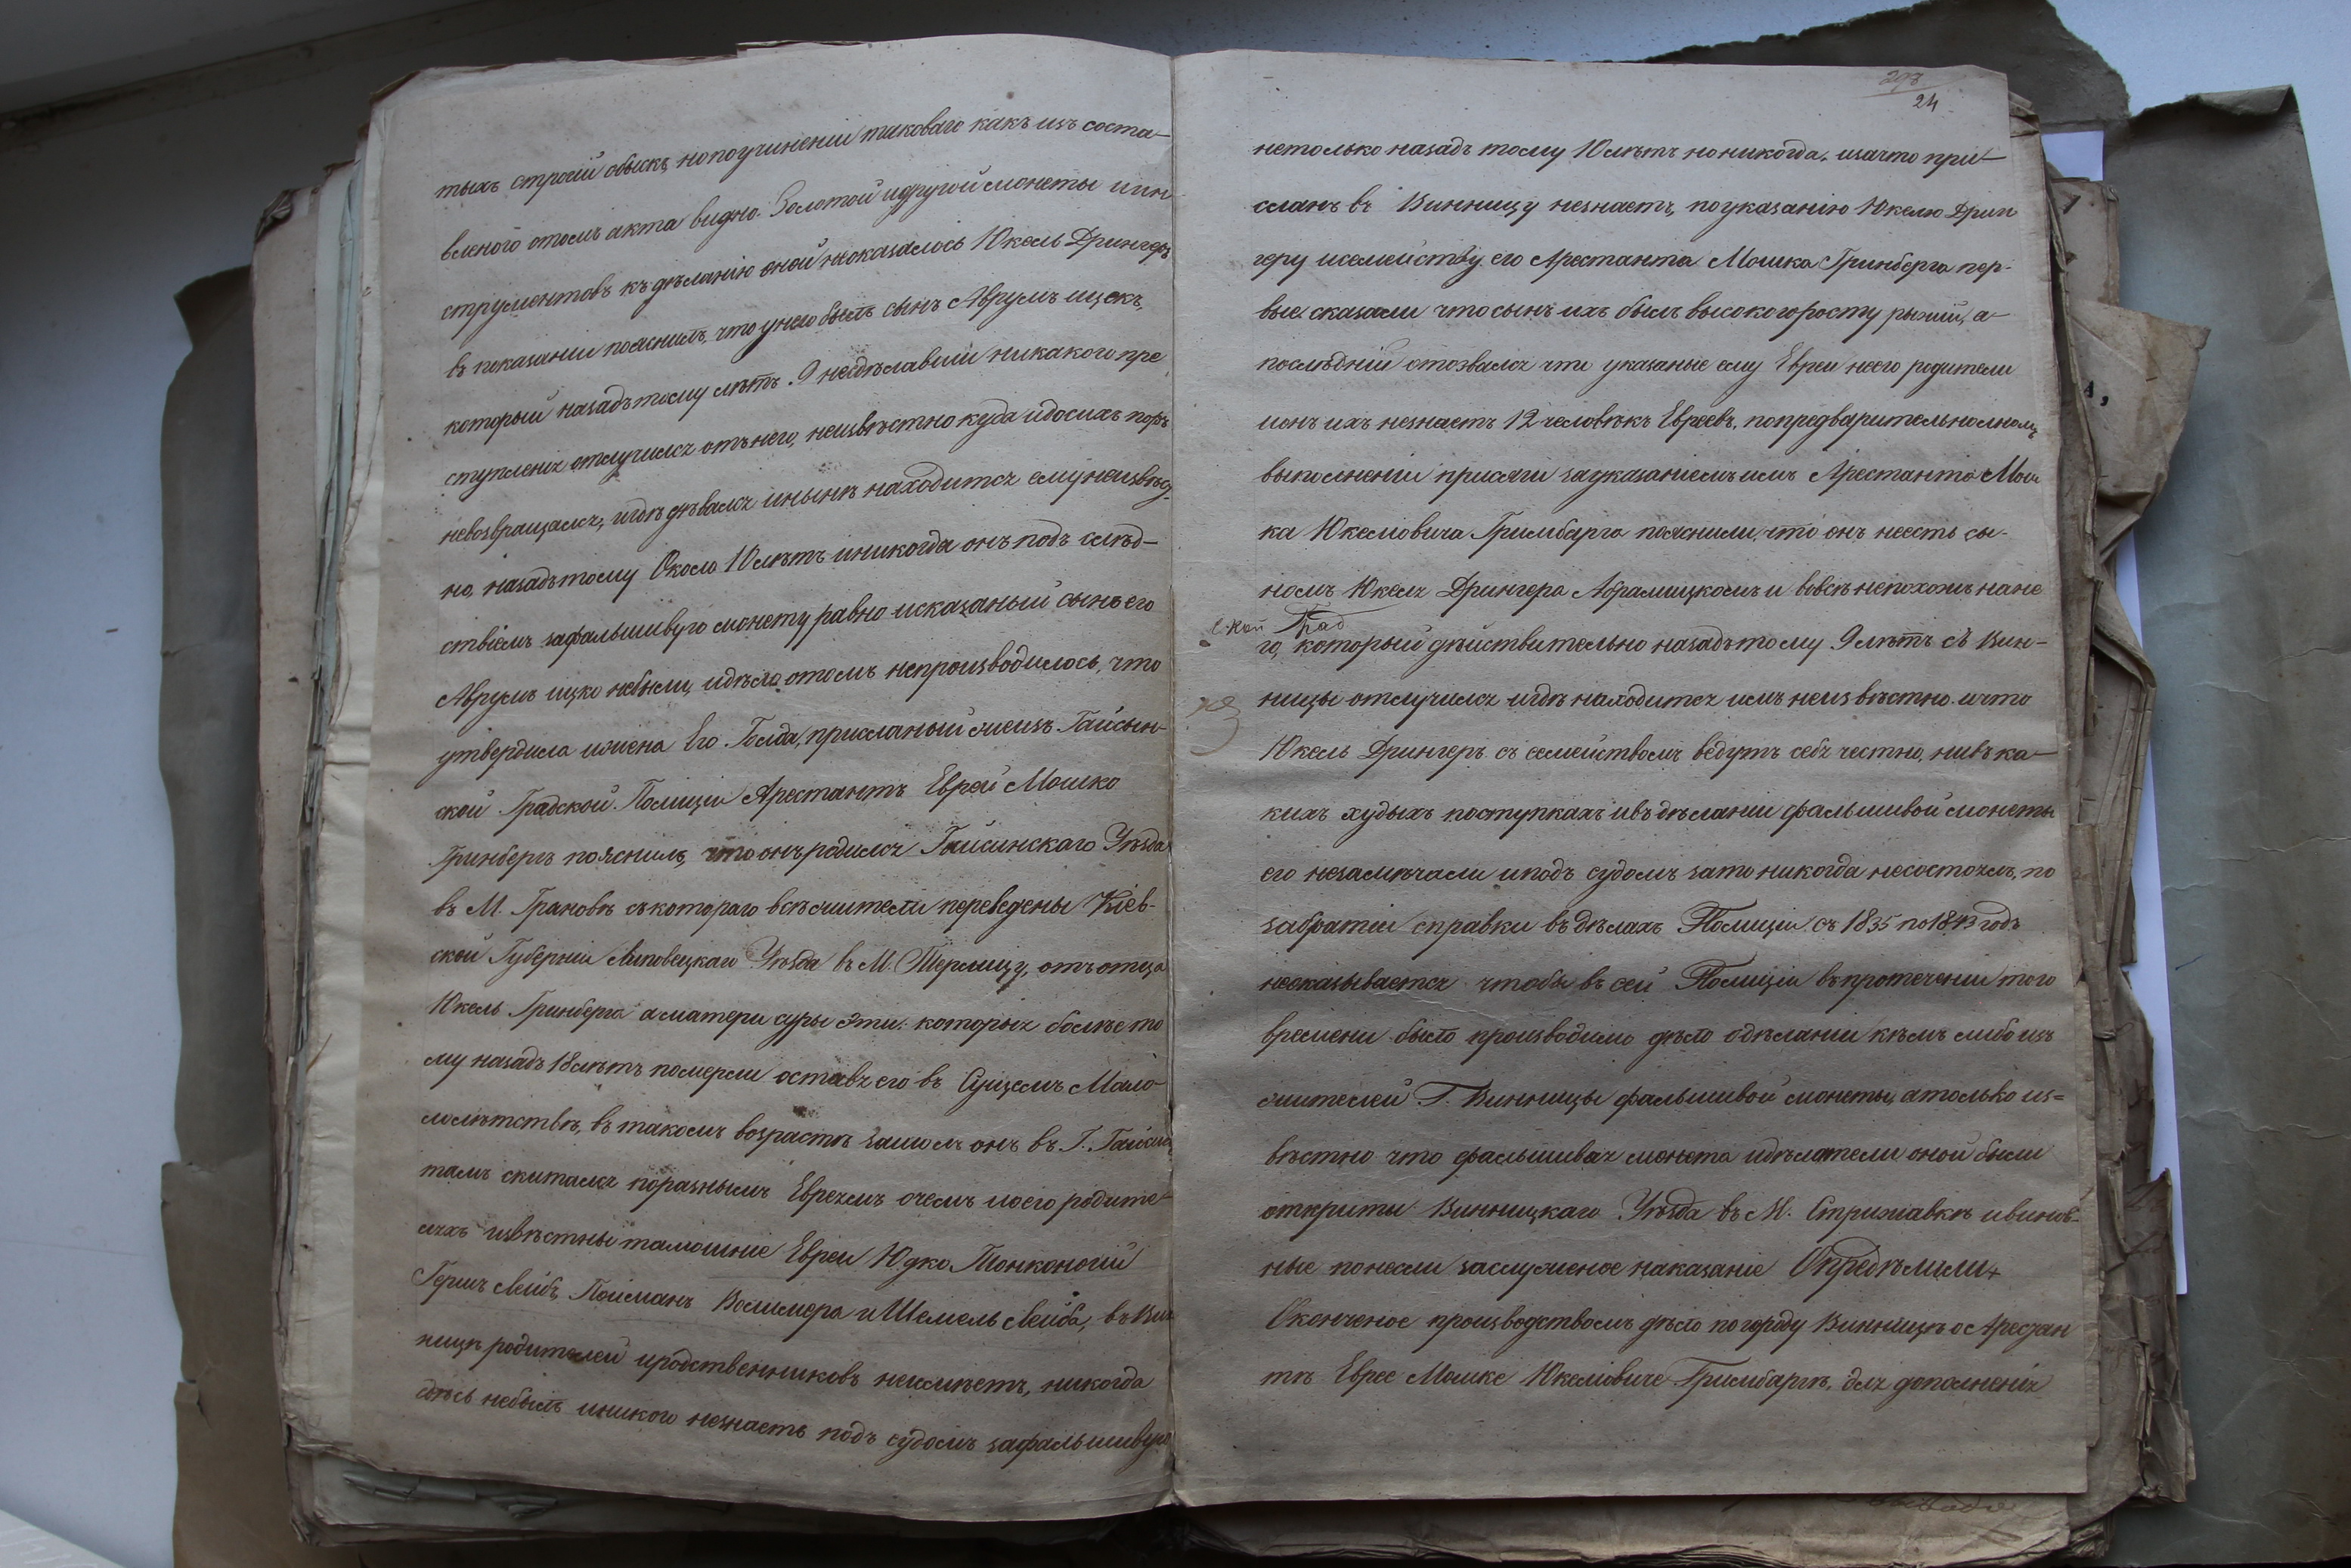 тыхъ строгій обыскъ, но по учиненіи таковаго какъ изъ соста-
вленого отомъ акта видно. Золотой идругой монеты иин
струментовъ къ дѣланію оной неоказалось Юкель Дрингеръ
въ показаніи пояснилъ, что унего былъ сынъ Аврумъ ицекъ,
который назадъ тому лѣтъ 9 несдѣлавши никакого пре
ступленія отлучился отънего, неизвѣстно куда идосихъ поръ
невозвращался, игдѣ дѣвался инынѣ находится ему неизвѣст-
но, назадъ тому Около 10 лѣтъ иникогда онъ подъ слѣд-
ствіемъ зафальшивую монету равно исказаный сынъ его
Аврумъ ицко небыли, идѣла отомъ непроизводилось, что
утвердила ижена Его Голда, присланый жеизъ Гайсын-
ской Градской Полиціи Арестантъ Еврей Мошко
Гринбергъ пояснилъ, что онъ родился Гайсинскаго Уѣзда
въ М. Грановѣ съкотораго всѣ жители переведены Кіев-
ской Губерніи Липовецкаго Уѣзда въ М. Терлицу, отъ отца
Юкель Гринберга аматери суры Эти: которыя болѣе то
му назадъ 18 лѣтъ померли оставя его въ Сущемъ Мало-
лолѣтствѣ, въ такомъ возрастѣ зашолъ онъ въ Г. Гайсинъ
тамъ скитался поразнымъ Евреямъ очемъ иоего родите-
ляхъ извѣстны тамошніе Евреи Юдко Тонконогій
Гершъ Лейбъ, Пойсманъ Волимера и Шемель Лейба, въ Вин
ницѣ родителей иродственниковъ неимѣетъ, никогда
здѣсь небылъ иникого незнаетъ подъ судомъ зафальшивую
24
нетолько назадъ тому 10 лѣтъ но никогда, изачто при-
сланъ въ Винницу незнаетъ, поуказанію Юкелю Дрин
геру исемейству его Арестанта Мошка Гринберга пер-
вые сказали что сынъ ихъ былъ высокого росту рыжій, а-
послѣдній отозвался что указаные ему Евреи неего родители
ионъ ихъ незнаетъ 12 человѣкъ Евреевъ, попредварительномъ
выполненіи присяги заuказаніемъ имъ Арестанта Мош
ка Юкеліовича Гримбарга пояснили, что онъ неесть сы-
номъ Юкеля Дрингера Абрамицкомъ и вовсѣ непохожъ нане
ской Град
го, который дѣйствительно назадъ тому 9 лѣтъ съ Вин-
ницы отлучился игдѣ находится имъ неизвѣстно. ичто
Юкель Дрингеръ съ семействомъ ведутъ себя честно, нивъ ка-
кихъ худыхъ поступкахъ ивъ дѣланіи фальшивой монеты
его незамѣчали иподъ судомъ зато никогда несостоялъ, по
забратіи справки въ дѣлахъ Полиціи съ 1835 по 1843 годъ
неоказывается чтобы въ сей Полиціи въ протеченіи того
времени было производимо дѣло одѣланіи кѣмъ либо изъ
жителей Г. Винницы фальшивой монеты, атолько из=
вѣстно что фальшивая монета идѣлатели оной были
открыты Винницкаго Уѣзда въ М. Стрижавкѣ ивинов-
ные понесли заслуженое наказаніе Опредѣлили
Оконченое производствомъ дѣло по городу Винницѣ о Арестан
тѣ Еврее Мошке Юкеліовиче Гримбаргѣ, для дополненія